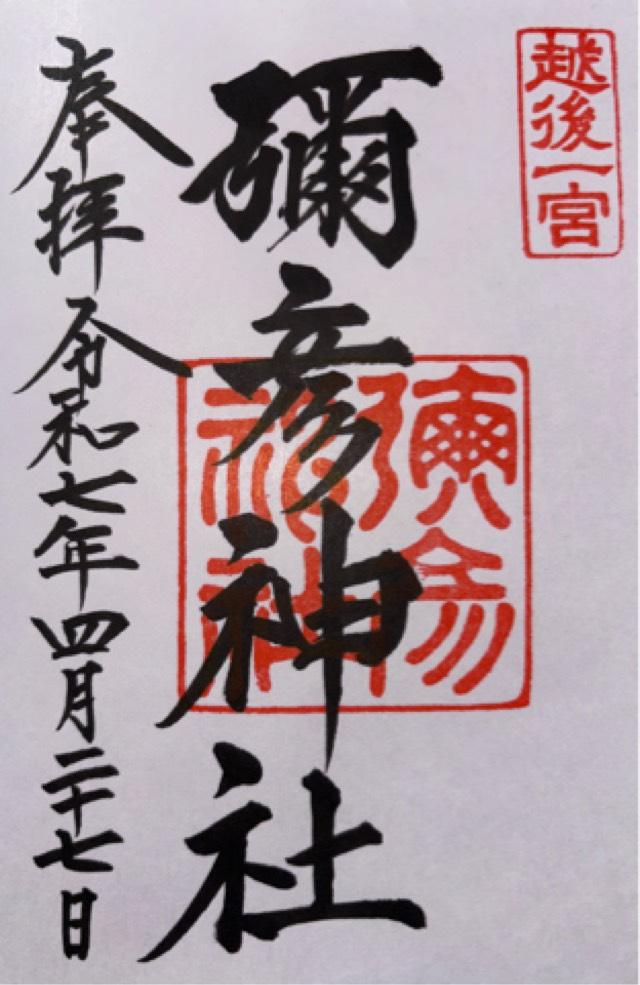 越後一宮
彌彦神社
奉拝 令和七年四月二十七日